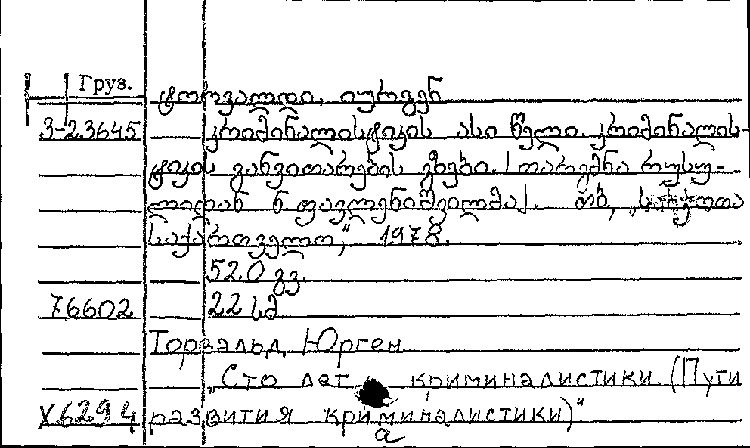 Груз.
ტორვალდი, იურგენ
3-23645 კრიმინალისტიკის ასი წელი. კრიმინალის-
ტიკის განვითარების გზები. [თარგმნა რუსუ-
ლიდან ნ. ფავლენიშვილმა]. თბ, „საბჭოთა
საქართველო“, 1978.
520 გვ.
76602 22 სმ
Торвальд, Юрген
„Сто лет криминалистики (Пути
X6294 развития криминалистики)“
а